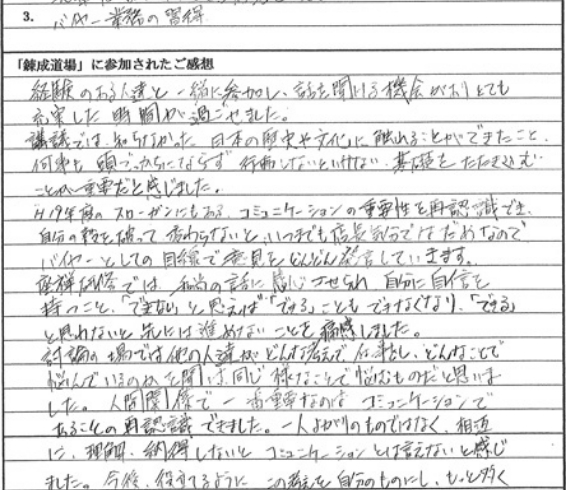 3. バイヤー業務の習得
「錬成道場」に参加されたご感想
経験のある人達と一緒に参加し、話を聞ける機会がありとても
充実した時間が過ごせました。
講議では、知らなかった日本の歴史や文化に触れることができたこと、
何事も頭でっかちにならず行動しないといけない、基礎をたたきこむ
ことが重要だと感じました。
H19年度のスローガンにもある、コミュニケーションの重要性を再認識でき、
自分の殻を破って変わらないと、いつまでも店長気分ではだめなので
バイヤーとしての目線で意見をどんどん発言していきます。
座禅研修では、和尚の話に感じさせられ自分に自信を
持つこと、「できない」と思えば「できる」こともできなくなり、「できる」
と思わないと先には進めないことを痛感しました。
討論の場では他の人達がどんな考えで仕事をし、どんなことで
悩んでいるのかを聞け、同じ様なことで悩むものだと思いま
した。人間関係で一番重要なのはコミュニケーションで
あることの再認識できました。一人よがりのものではなく、相互
に、理解、納得しないとコミュニケーションとは言えないと感じ
ました。今後、役立てるようにこの考えを自分のものにし、もっと多く